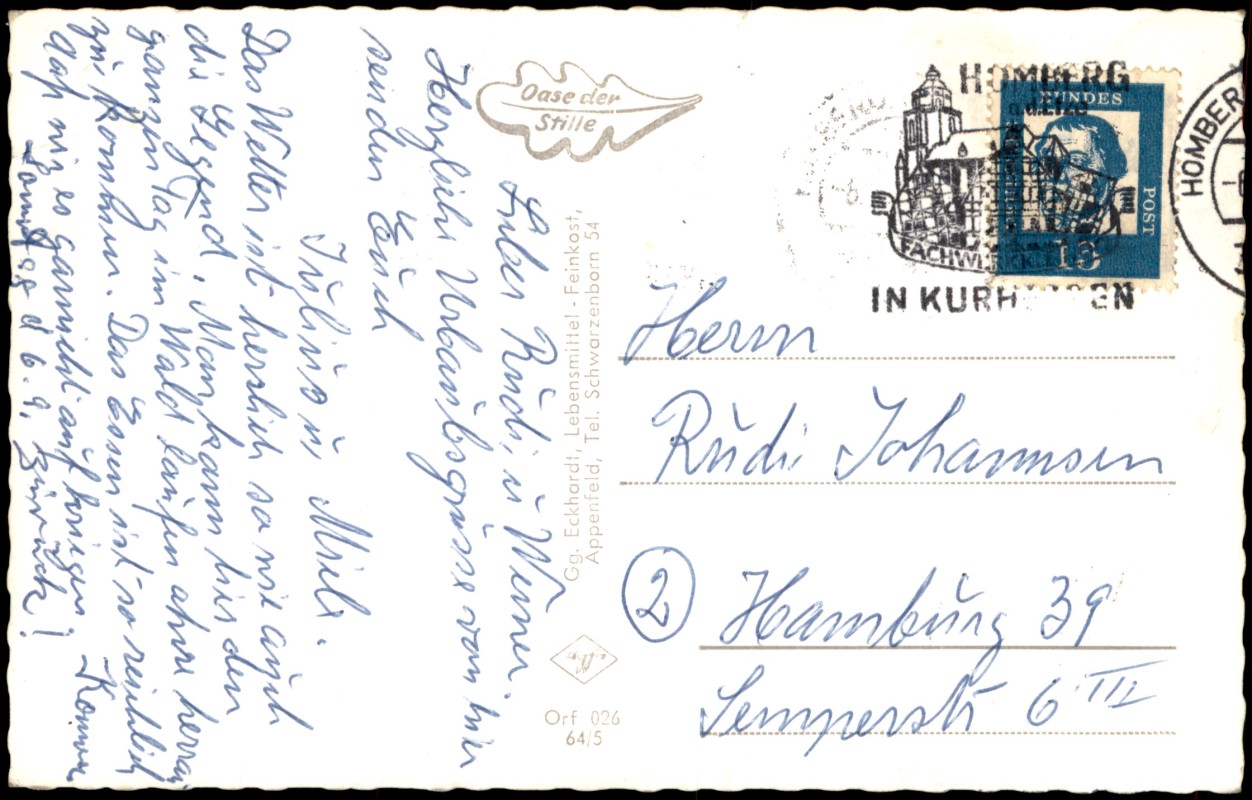 Oase der
Stille
Lieber Rudi u Werner.
Herzliche Urlaubsgrüsse von hier
senden Euch
Julius u Miele.
Das Wetter ist herrlich so wie auch
die Gegend. Man kann hier den
ganzen Tag im Wald laufen ohne heraus
zu kommen. Das Essen ist so reichlich
daß wir es garnicht auf kriegen! Kommen
d 6.9. zurück!
Gg. Eckhardt, Lebensmittel - Feinkost,
Appenfeld, Tel. Schwarzenborn 54
Orf 026
64/5
HOMBERG
a.d. Efze
FACHWERK
IN KURHESSEN
BUNDES
POST
15
HOMBERG
Herrn
Rudi Johannsen
2 Hamburg 39
Semperstr 6 III